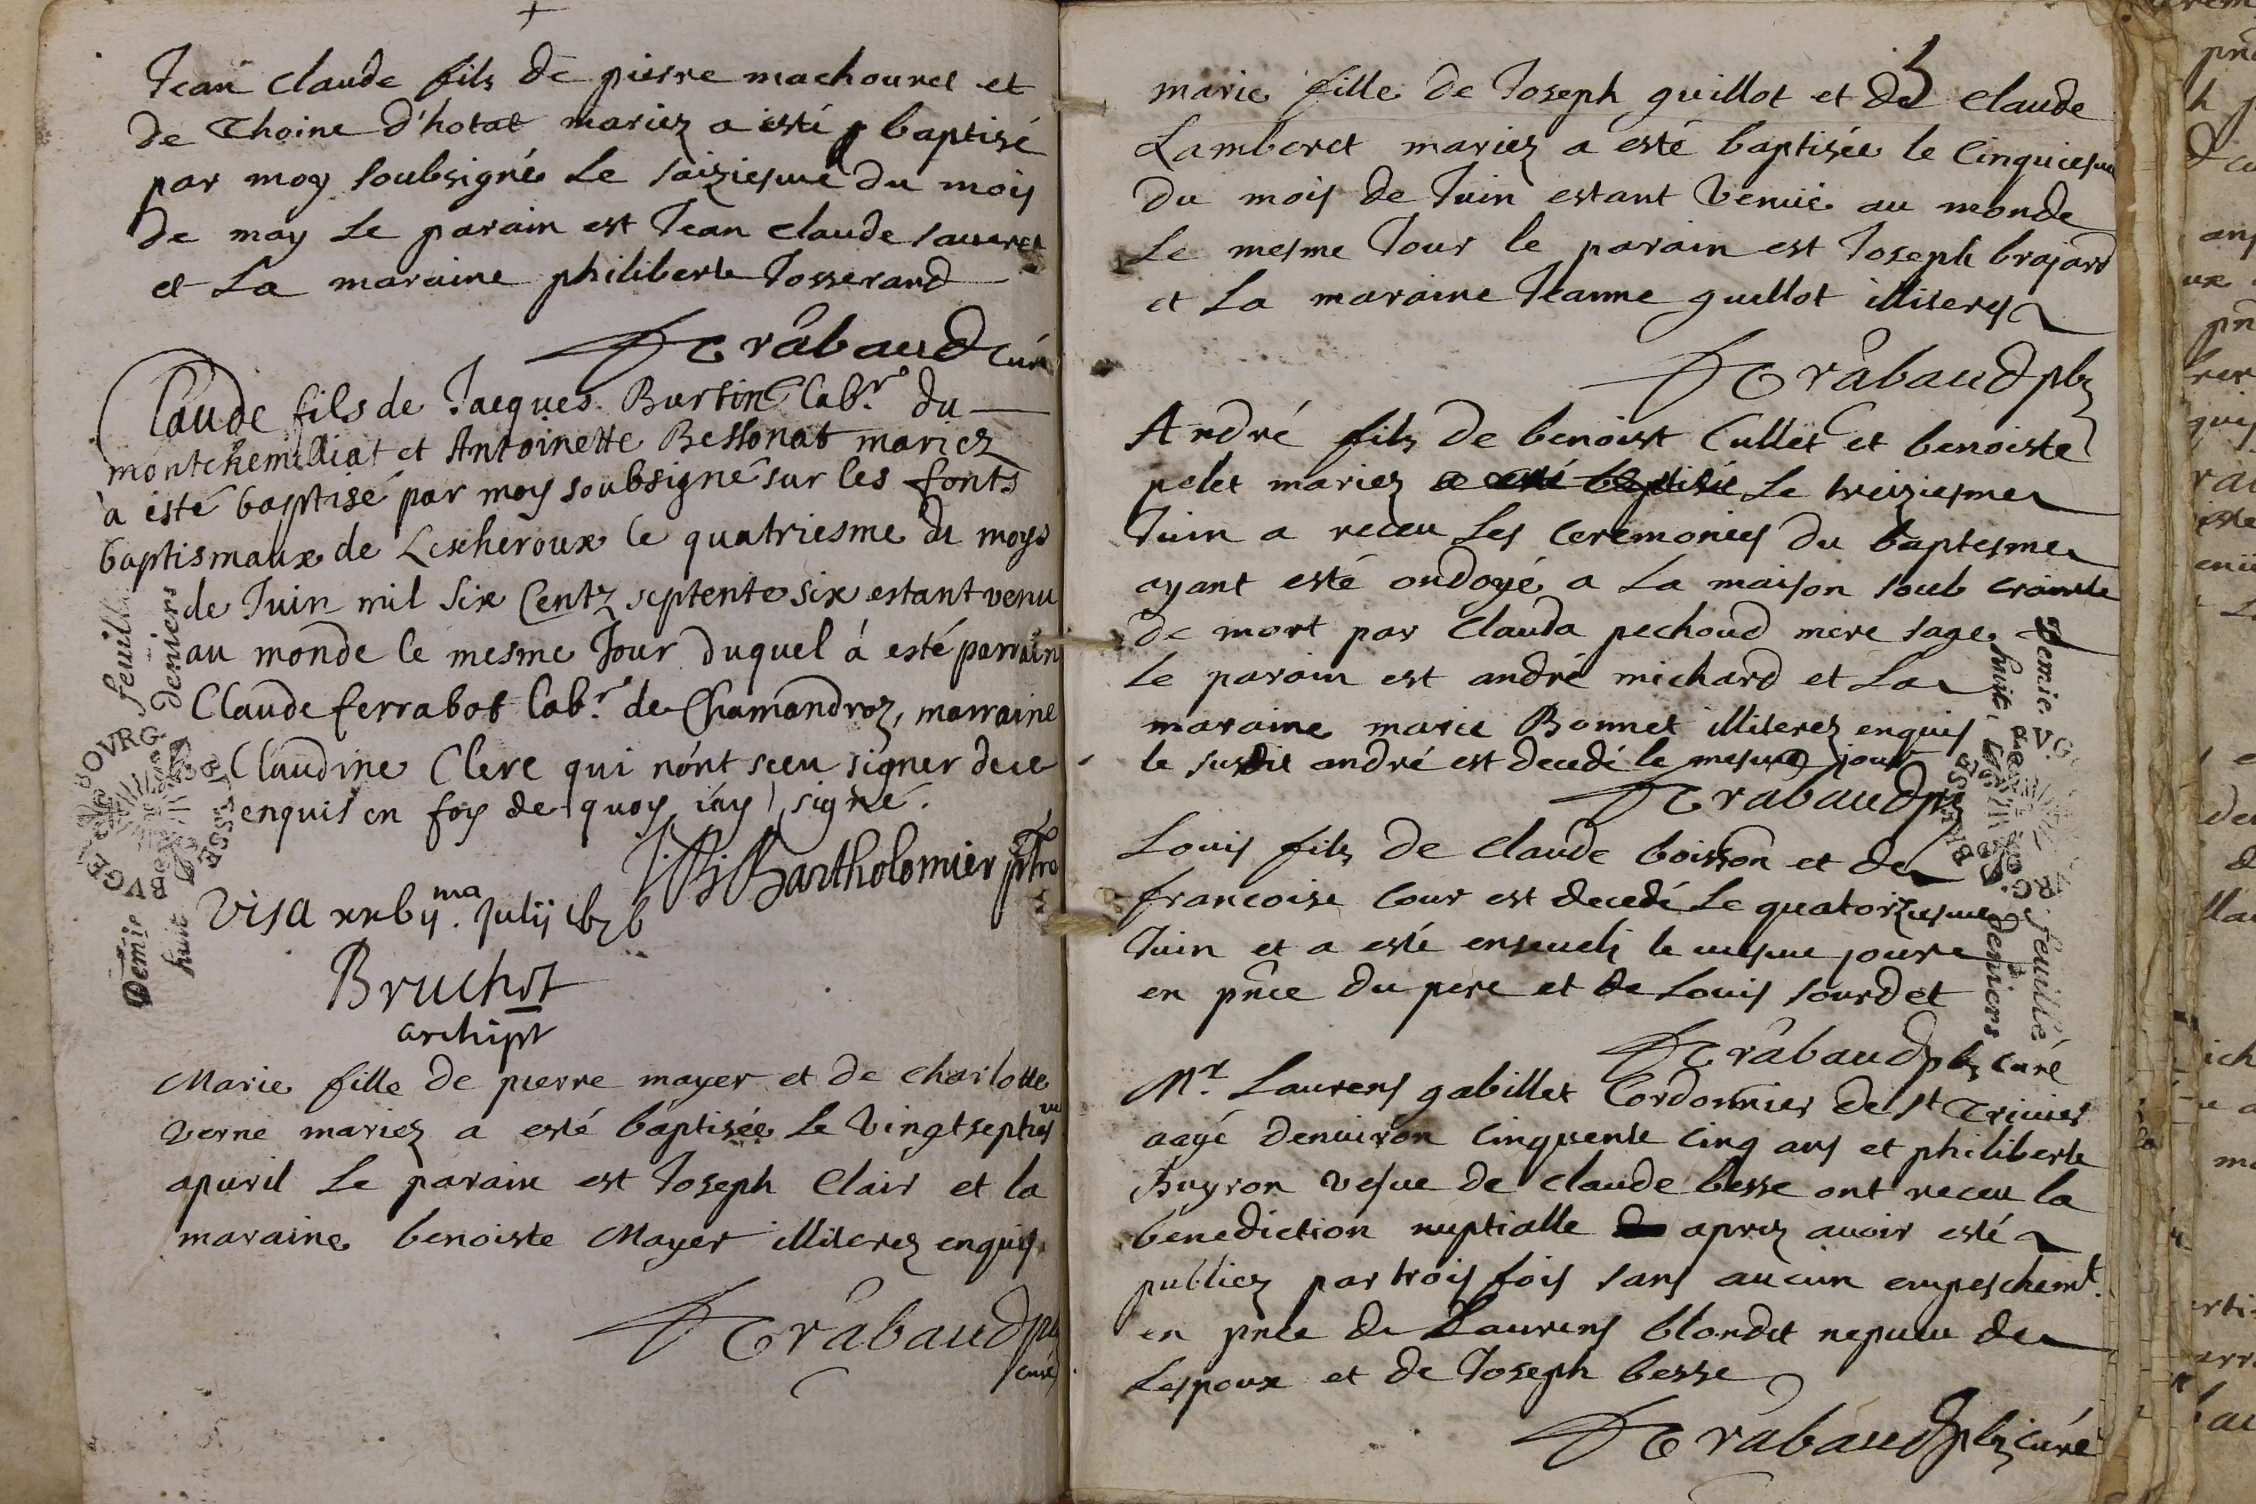 Jean claude fils de pierre machouret et
de Thoine d'hotat mariez a esté baptisé
par moy soubsigné le saiziesme du mois
de may le parain est Jean claude sauvret
et La maraine philiberte Josserand
Trabaud curé
Claude fils de Jacques Burtin labr. du
montchemilliat et Antoinette Bessonat mariez
à esté baptisé par moy soubsigné sur les fonts
baptismaux de Lescheroux le quatriesme du moys
de Juin mil six Centz septente six estant venu
au monde le mesme Jour duquel à esté parrain
Claude ferrabot labr. de Chamandroz, marraine
Claudine Clere qui n'ont sceu signer de ce
enquis en foy de quoy j'ay signé.
Bartholomier pbre
Visa xxbij.ma Julij 1676
Bruchot
archipr
Marie fille de pierre mayer et de charlotte
verne mariez a esté baptisée le vingtseptiesm
apuril le parain est Joseph Clair et la
maraine benoiste Mayer illiterez enquis
Trabaud pbr
curé
BOURG EN BRESSE BUGEY
Demie feuille
huit deniers
5
marie fille de Joseph guillot et de claude
Lamberet mariez a esté baptisée le Cinquiesme
du mois de Juin estant venüe au monde
le mesme Jour le parain est Joseph brajard
et La maraine Jeanne guillot illiteres
Trabaud pbr
André fils de benoist Cullet et benoiste
pelet mariez a esté baptisé le treiziesme
Juin a receu les ceremonies du baptesme
ayant esté ondoyé a la maison soub crainte
de mort par Clauda pechoud mere sage
le parain est andré michard et La
maraine marie Bonnet illiterez enquis
le susdit andré est decedé le mesme jour
Trabaud pbr
Louis fils de claude boisson et de
francoise Cour est decedé le quatorziesme
Juin et a esté enseueli le mesme jour
en pnce du pere et de Louis sourdet
Trabaud pbr curé
Mr. Laurens gabillet Cordonnier de St Triuier
aagé denuiron cinquente cinq ans et philiberte
Buyron vefue de claude besse ont receu la
benediction nuptialle aprez auoir esté
publiez par trois fois sans aucun empeschemt.
en pnce de Laurens blondet nepueu de
Lespoux et de Joseph besse
Trabaud pbr curé
Demie feuille
huit deniers